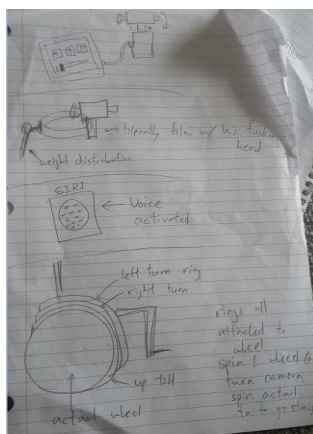 literally film w/ his fucking
head
weight distribution
SIRI
Voice
activated
left turn rig
right turn
rings all
attached to
wheel
spin 1 wheel to
turn camera
spin actual
to go
up tilt
actual wheel